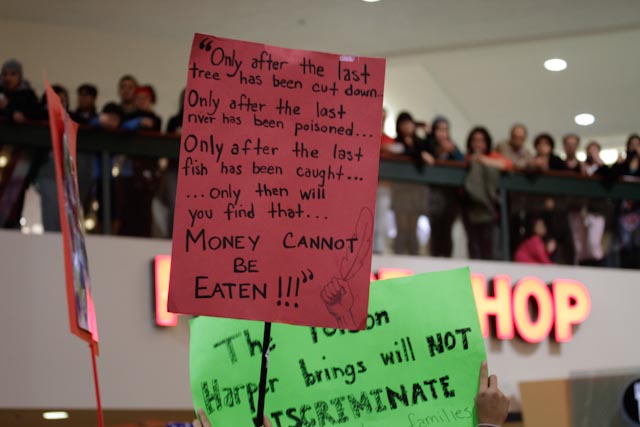 "Only after the last
tree has been cut down...
Only after the last
river has been poisoned...
Only after the last
fish has been caught...
...Only then will
you find that...
MONEY CANNOT
BE
EATEN!!!"
The Poison
Harper brings will NOT
DISCRIMINATE
families
HOP